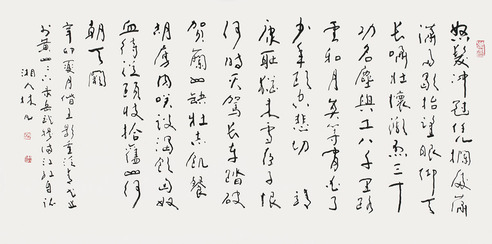 怒髮冲冠凭欄處瀟
瀟雨歇抬望眼仰天
長嘯壯懷激烈三十
功名塵與土八千里路
雲和月莫等閑白了
少年頭空悲切 靖
康恥猶未雪臣子恨
何時滅駕長車踏破
賀蘭山缺壯志飢餐
胡虜肉笑談渴飲匈奴
血待從頭收拾舊山河
朝天闕
辛卯夏月
岳武穆滿江紅
湖人林凡